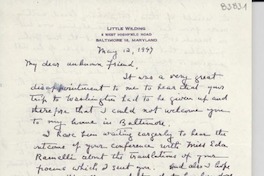 83831
LITTLE WILDING
3 WEST HIGHFIELD ROAD
BALTIMORE 18, MARYLAND
May 13, 1947
My dear unknown friend,
It was a very great
disappointment to me to hear that your
trip to Washington had to be given up and
therefore that I could not welcome you
to my home in Baltimore.
I have been waiting eagerly to hear the
outcome of your conference with Miss Eda
Ramelli about the translations of your
poems which I sent you.
and also I hope